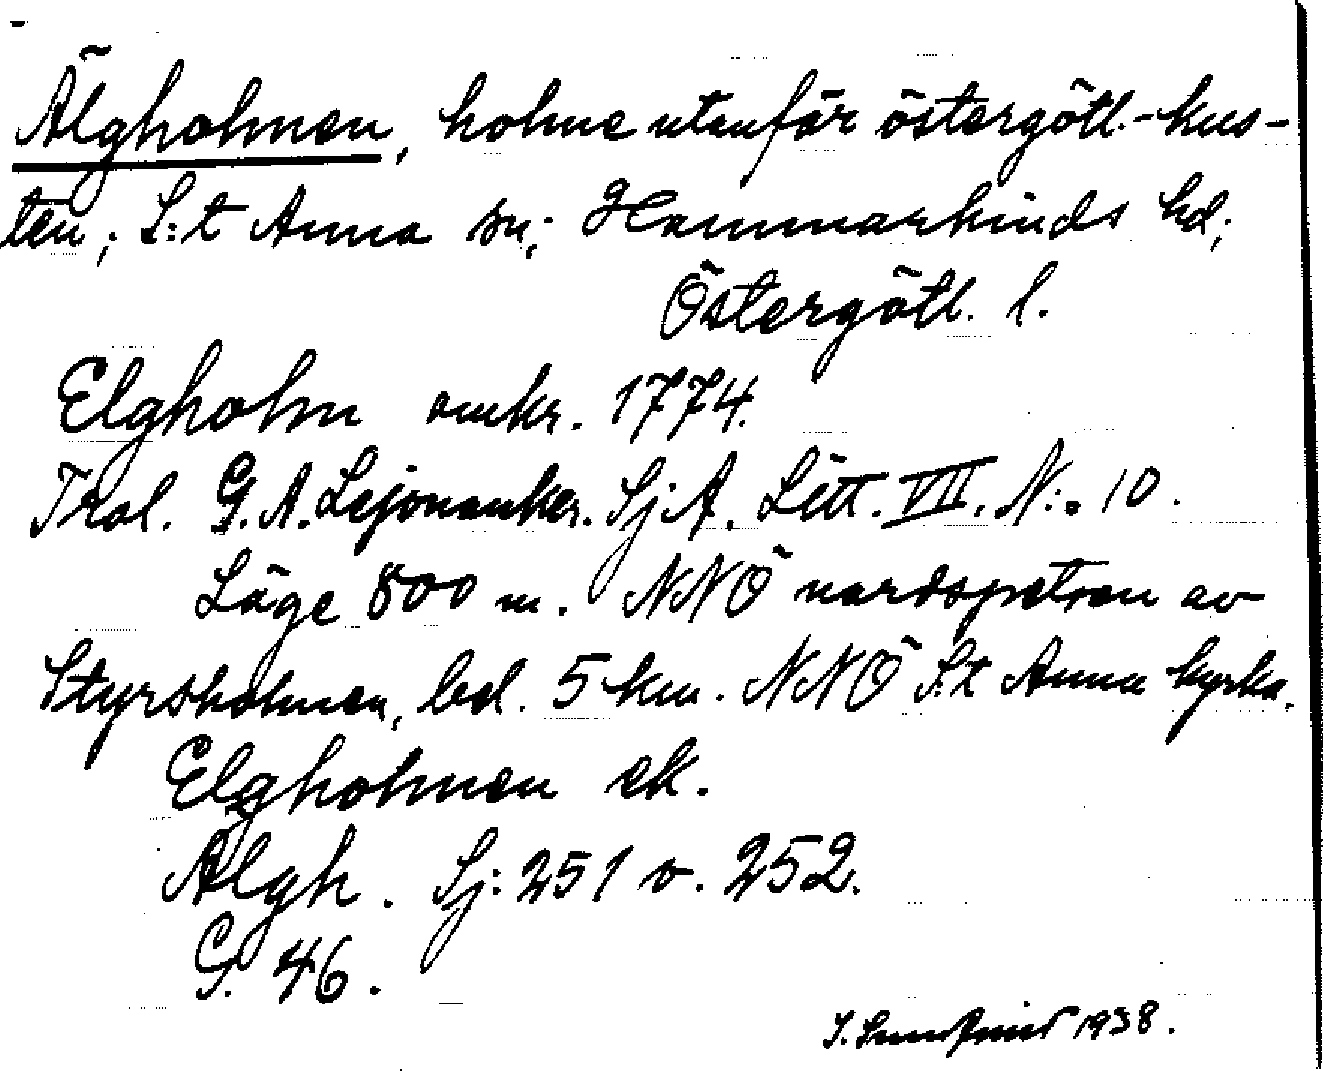 Älgholmen, holme utanför östergötl.-kus-
ten; S:t Anna sn; Hammarkinds hd;
Östergötl. l.
Elgholm omkr. 1774.
Trol. G. A. Lejonanker. Sj.A. Litt. VII. N:o 10.
Läge 800 m. NNÖ nordspetsen av
Styrsholmen, bel. 5 km. NNÖ S:t Anna kyrka.
Elgholmen ek.
Älgh. Sj: 251 o. 252.
G. 46.
J. 1938.